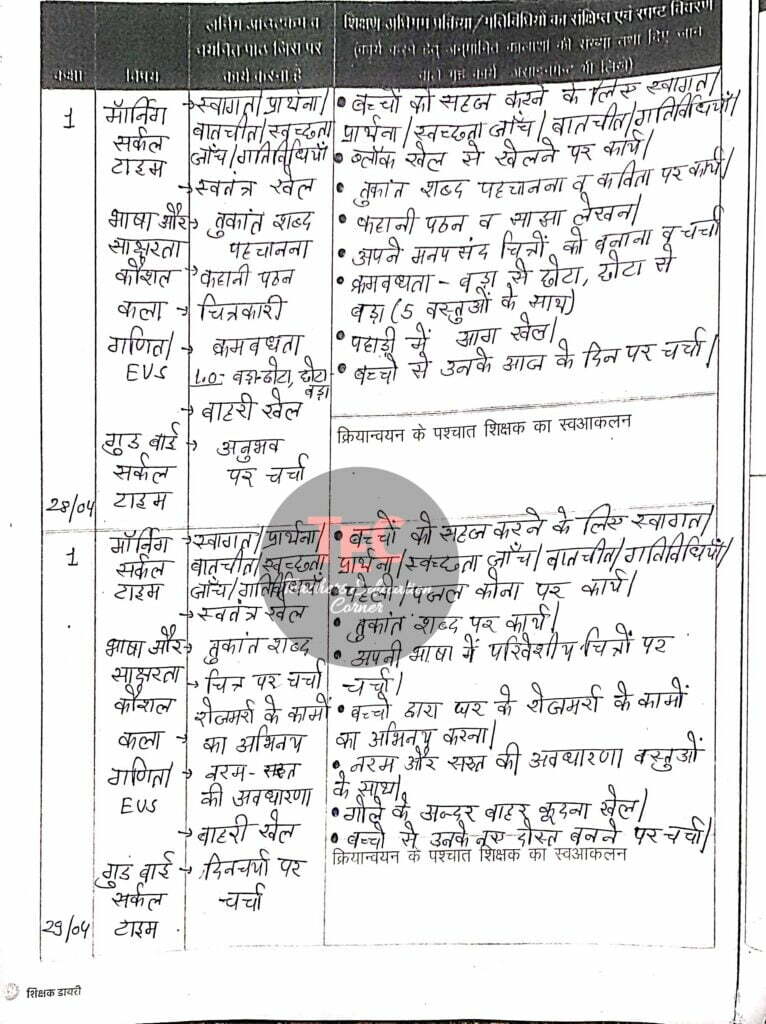 लर्निंग आउटकम व
चयनित पाठ जिस पर
कार्य करना है
शिक्षण अधिगम प्रक्रिया/गतिविधियों का संक्षिप्त एवं स्पष्ट विवरण
(कार्य करने हेतु अनुमानित कालांश की संख्या तथा दिए जाने
वाले गृह कार्य असाइनमेन्ट भी लिखें)
कक्षा
विषय
1
मॉर्निंग
सर्कल
टाइम
भाषा और
साक्षरता
कौशल
कला
गणित/
EVS
गुड बाई
सर्कल
टाइम
28/04
→ स्वागत/प्रार्थना/
बातचीत/स्वच्छता
जाँच/गतिविधियाँ
→ स्वतंत्र खेल
→ तुकांत शब्द
पहचानना
→ कहानी पठन
→ चित्रकारी
→ क्रमबध्धता
L.O- बड़ा-छोटा, छोटा
बड़ा
→ बाहरी खेल
→ अनुभव
पर चर्चा
• बच्चों को सहज करने के लिए स्वागत/
प्रार्थना/स्वच्छता जाँच/बातचीत/गतिविधियाँ/
• ब्लॉक खेल से खेलने पर कार्य/
• तुकांत शब्द पहचानना व कविता पर कार्य/
• कहानी पठन व साझा लेखन/
• अपने मनपसंद चित्रों को बनाना व चर्चा
• क्रमबध्धता - बड़ा से छोटा, छोटा से
बड़ा (5 वस्तुओं के साथ)
• पहाड़ी में आग खेल/
• बच्चों से उनके आज के दिन पर चर्चा/
क्रियान्वयन के पश्चात शिक्षक का स्वआकलन
1
मॉर्निंग
सर्कल
टाइम
भाषा और
साक्षरता
कौशल
कला
गणित/
EVS
गुड बाई
सर्कल
टाइम
29/04
→ स्वागत/प्रार्थना/
बातचीत/स्वच्छता
जाँच/गतिविधियाँ
→ स्वतंत्र खेल
→ तुकांत शब्द
→ चित्र पर चर्चा
रोजमर्रा के कामों
→ का अभिनय
→ नरम - सख्त
की अवधारणा
→ बाहरी खेल
→ दिनचर्या पर
चर्चा
• बच्चों को सहज करने के लिए स्वागत/
प्रार्थना/स्वच्छता जाँच/बातचीत/गतिविधियाँ/
• पहेली/पजल कोना पर कार्य/
• तुकांत शब्द पर कार्य/
• अपनी भाषा में परिवेशीय चित्रों पर
चर्चा/
• बच्चों द्वारा घर के रोजमर्रा के कामों
का अभिनय करना/
• नरम और सख्त की अवधारणा वस्तुओं
के साथ/
• गोले के अन्दर बाहर कूदना खेल/
• बच्चो से उनके नए दोस्त बनने पर चर्चा/
क्रियान्वयन के पश्चात शिक्षक का स्वआकलन
TEC
Corner
शिक्षक डायरी